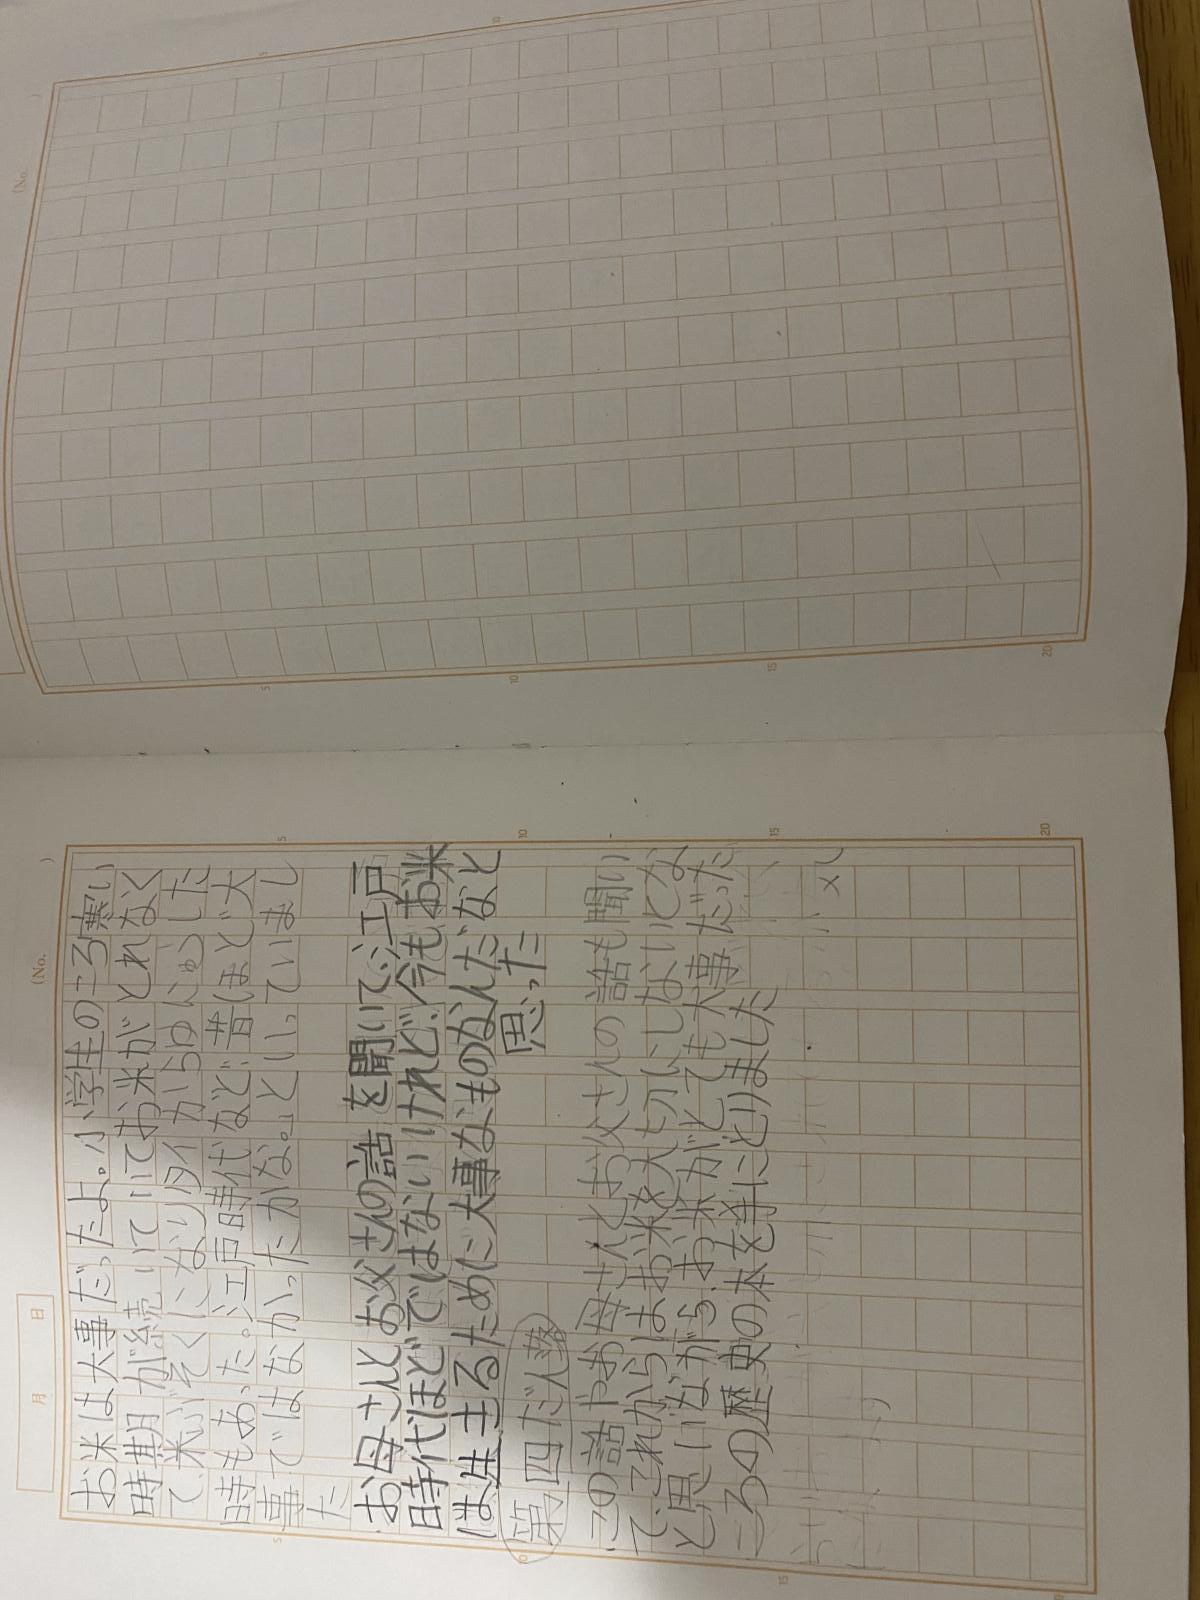 お米は大事だったよ。小学生のころ寒い
時期が続いていてお米がとれなく
て、米ぶそくになりタイからゆにゅうした
時もあった。江戸時代など、昔ほど大
事ではなかったかな。」といっていまし
た
お母さんとお父さんの話を聞いて、江戸
時代ほどではないけれど、今もお米
は生きるために大事なものなんだなと
思った
第四だん落
この話やお母さんとお父さんの話も聞い
て、これからはお米を大切にしないとな
と思いながら、お米がとても大事だった
ころの歴史の本を手にとりました
(No.
)
月 日
5
10
15
20
5
10
15
(No.
)
5
10
5
10
15
20